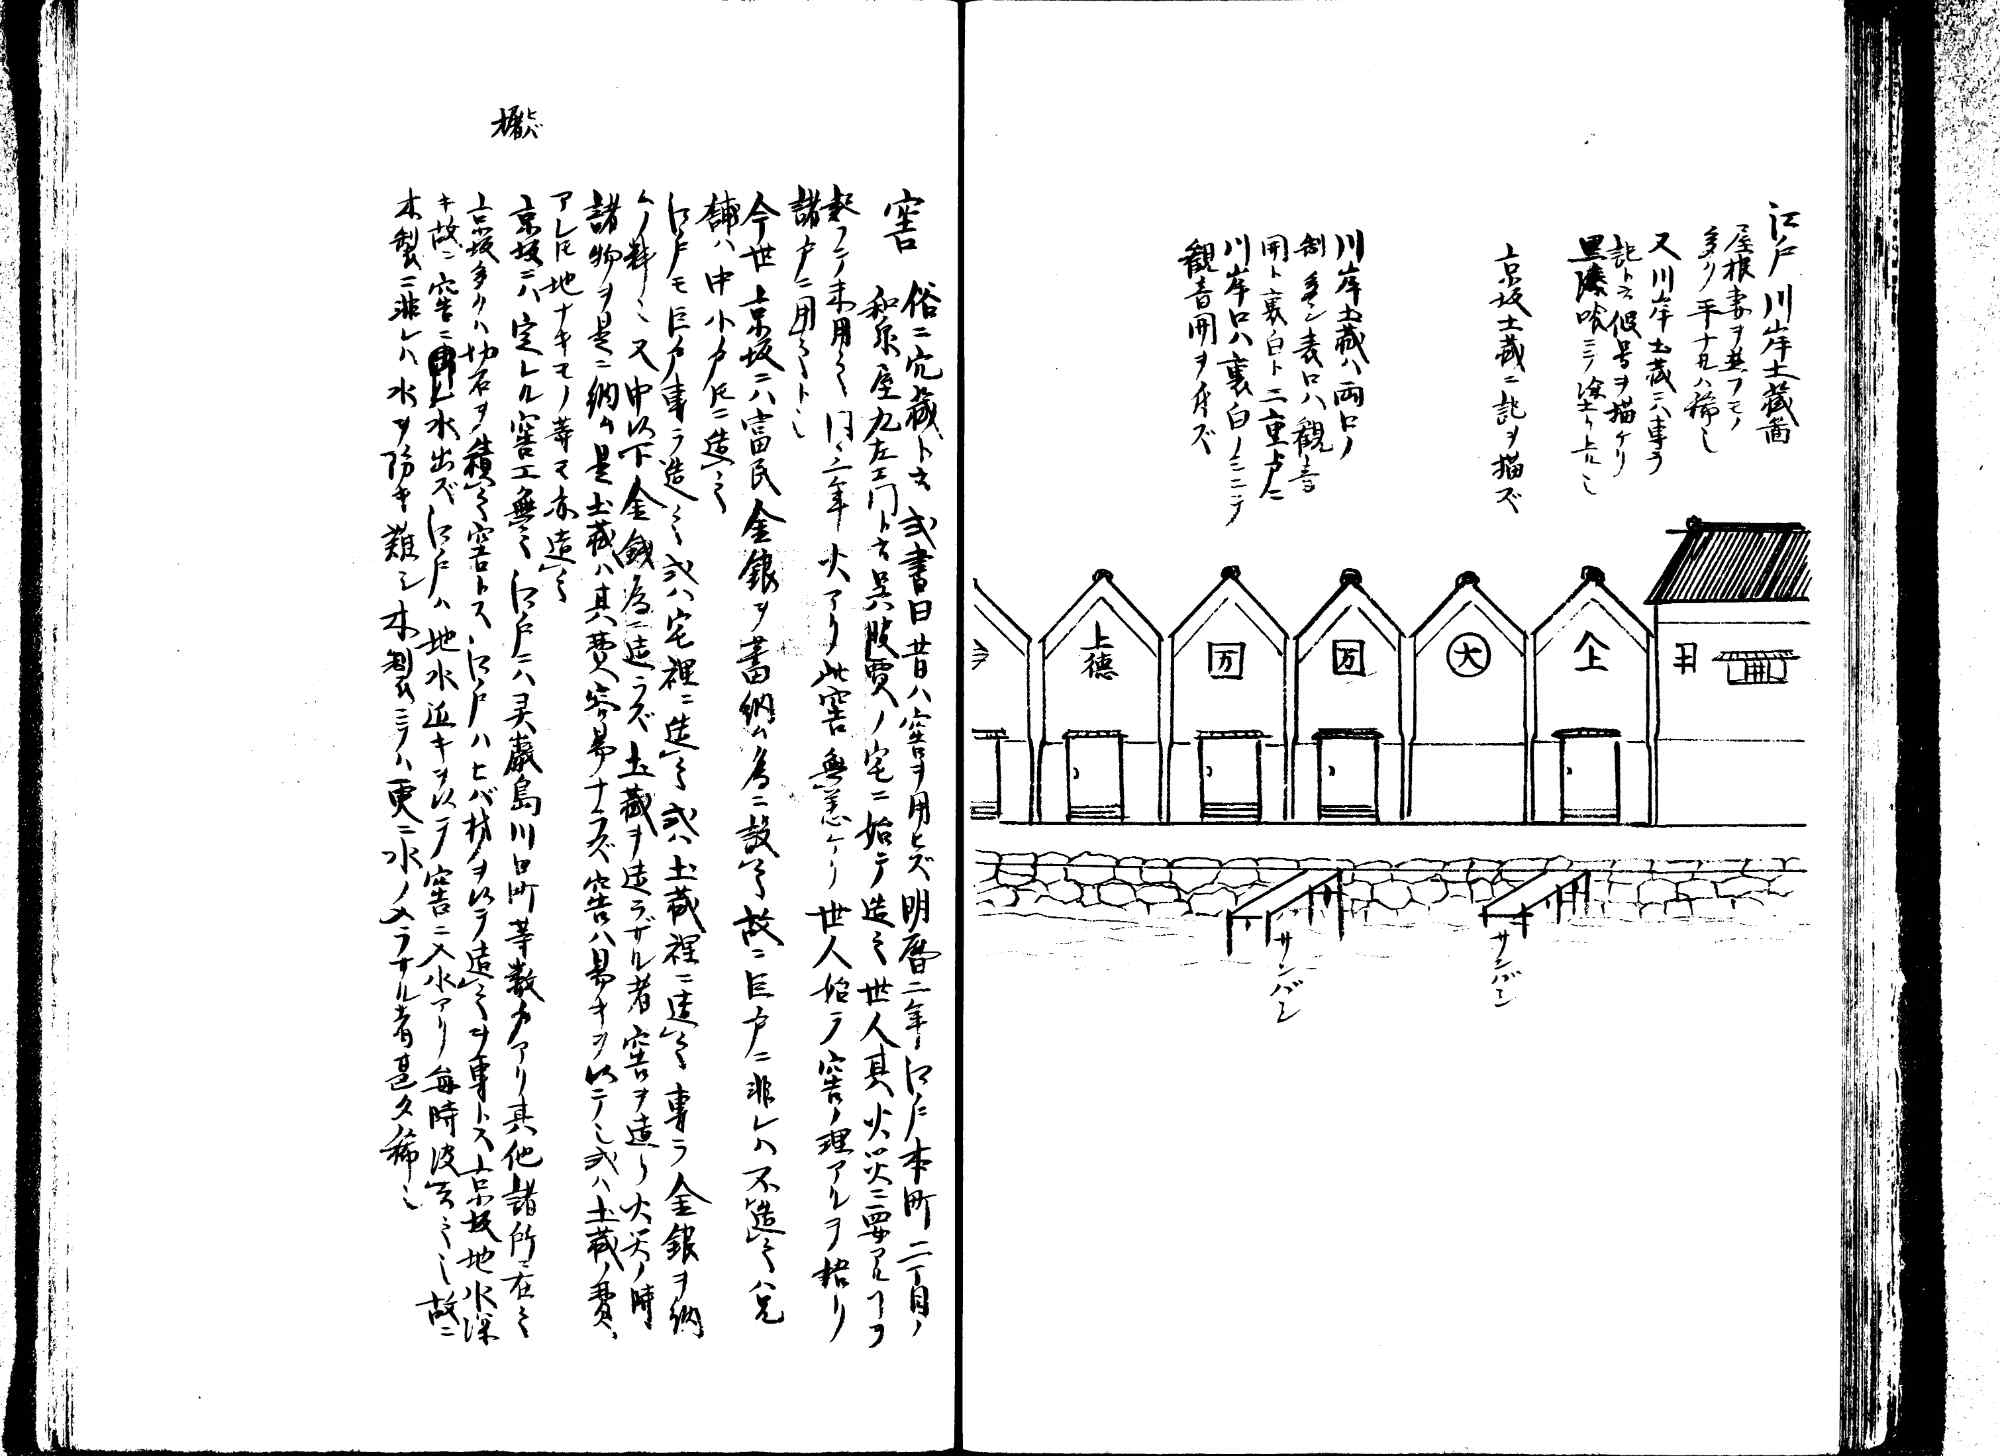 江戸川岸土蔵図
屋根妻ヲ並フモノ
多ク平ナルハ稀也
又川岸土蔵ニハ専ラ
記ト云假号ヲ描ケリ
黒漆喰ニテ塗リ上ル也
京坂土蔵ニ記ヲ描ズ
川岸土蔵ハ両口ノ
制多シ表口ハ観音
開ト裏白ト二重戸ニ
川岸口ハ裏白ノミニテ
観音開ヲ付ズ
上
大
万
万
上徳
サンバシ
サンバシ
窖 俗ニ穴蔵ト云 或書曰昔ハ窖ヲ用ヒズ明暦二年江戸本町二丁目ノ
和泉屋九左エ門ト云呉服賈ノ宅ニ始テ造之世人其火災ニ要アルヿヲ
未用之同三年火アリ此窖無恙ケリ世人始テ窖ノ理アルヲ悟リ
諸戸ニ用之ト也
今世京坂ニハ富民金銀ヲ蓄納ム為ニ設之故ニ巨戸ニ非レハ不造之
舗ハ中小戸トモニ造之
江戸モ巨戸専ラ造之或ハ宅裡ニ造之或ハ土蔵裡ニ造之専ラ金銀ヲ納
ムノ料也又中以下金銭為ニ造ラズ土蔵ヲ造ラザル者窖ヲ造リ火災ノ時
諸物ヲ是ニ納ム是土蔵ハ其費容易ナラズ窖ハ易キヲ以テ也或ハ土蔵ノ費
アレトモ地ナキモノ等モ亦造之
京坂ニハ定レル窖工無之江戸ニハ灵巌島川口町等数戸アリ其他諸所ニ在之
京坂多クハ切石ヲ積之窖トス江戸ハヒバ材ヲ以テ造之ヲ専トス京坂地水深
キ故ニ窖ニ水出ズ江戸ハ地水近キヲ以テ窖ニ入水アリ毎時汲去之也故ニ
木製ニ非レハ水ヲ防キ難シ木製ニテハ更ニ水ノ入ラザル者甚タ稀也
ヒバ